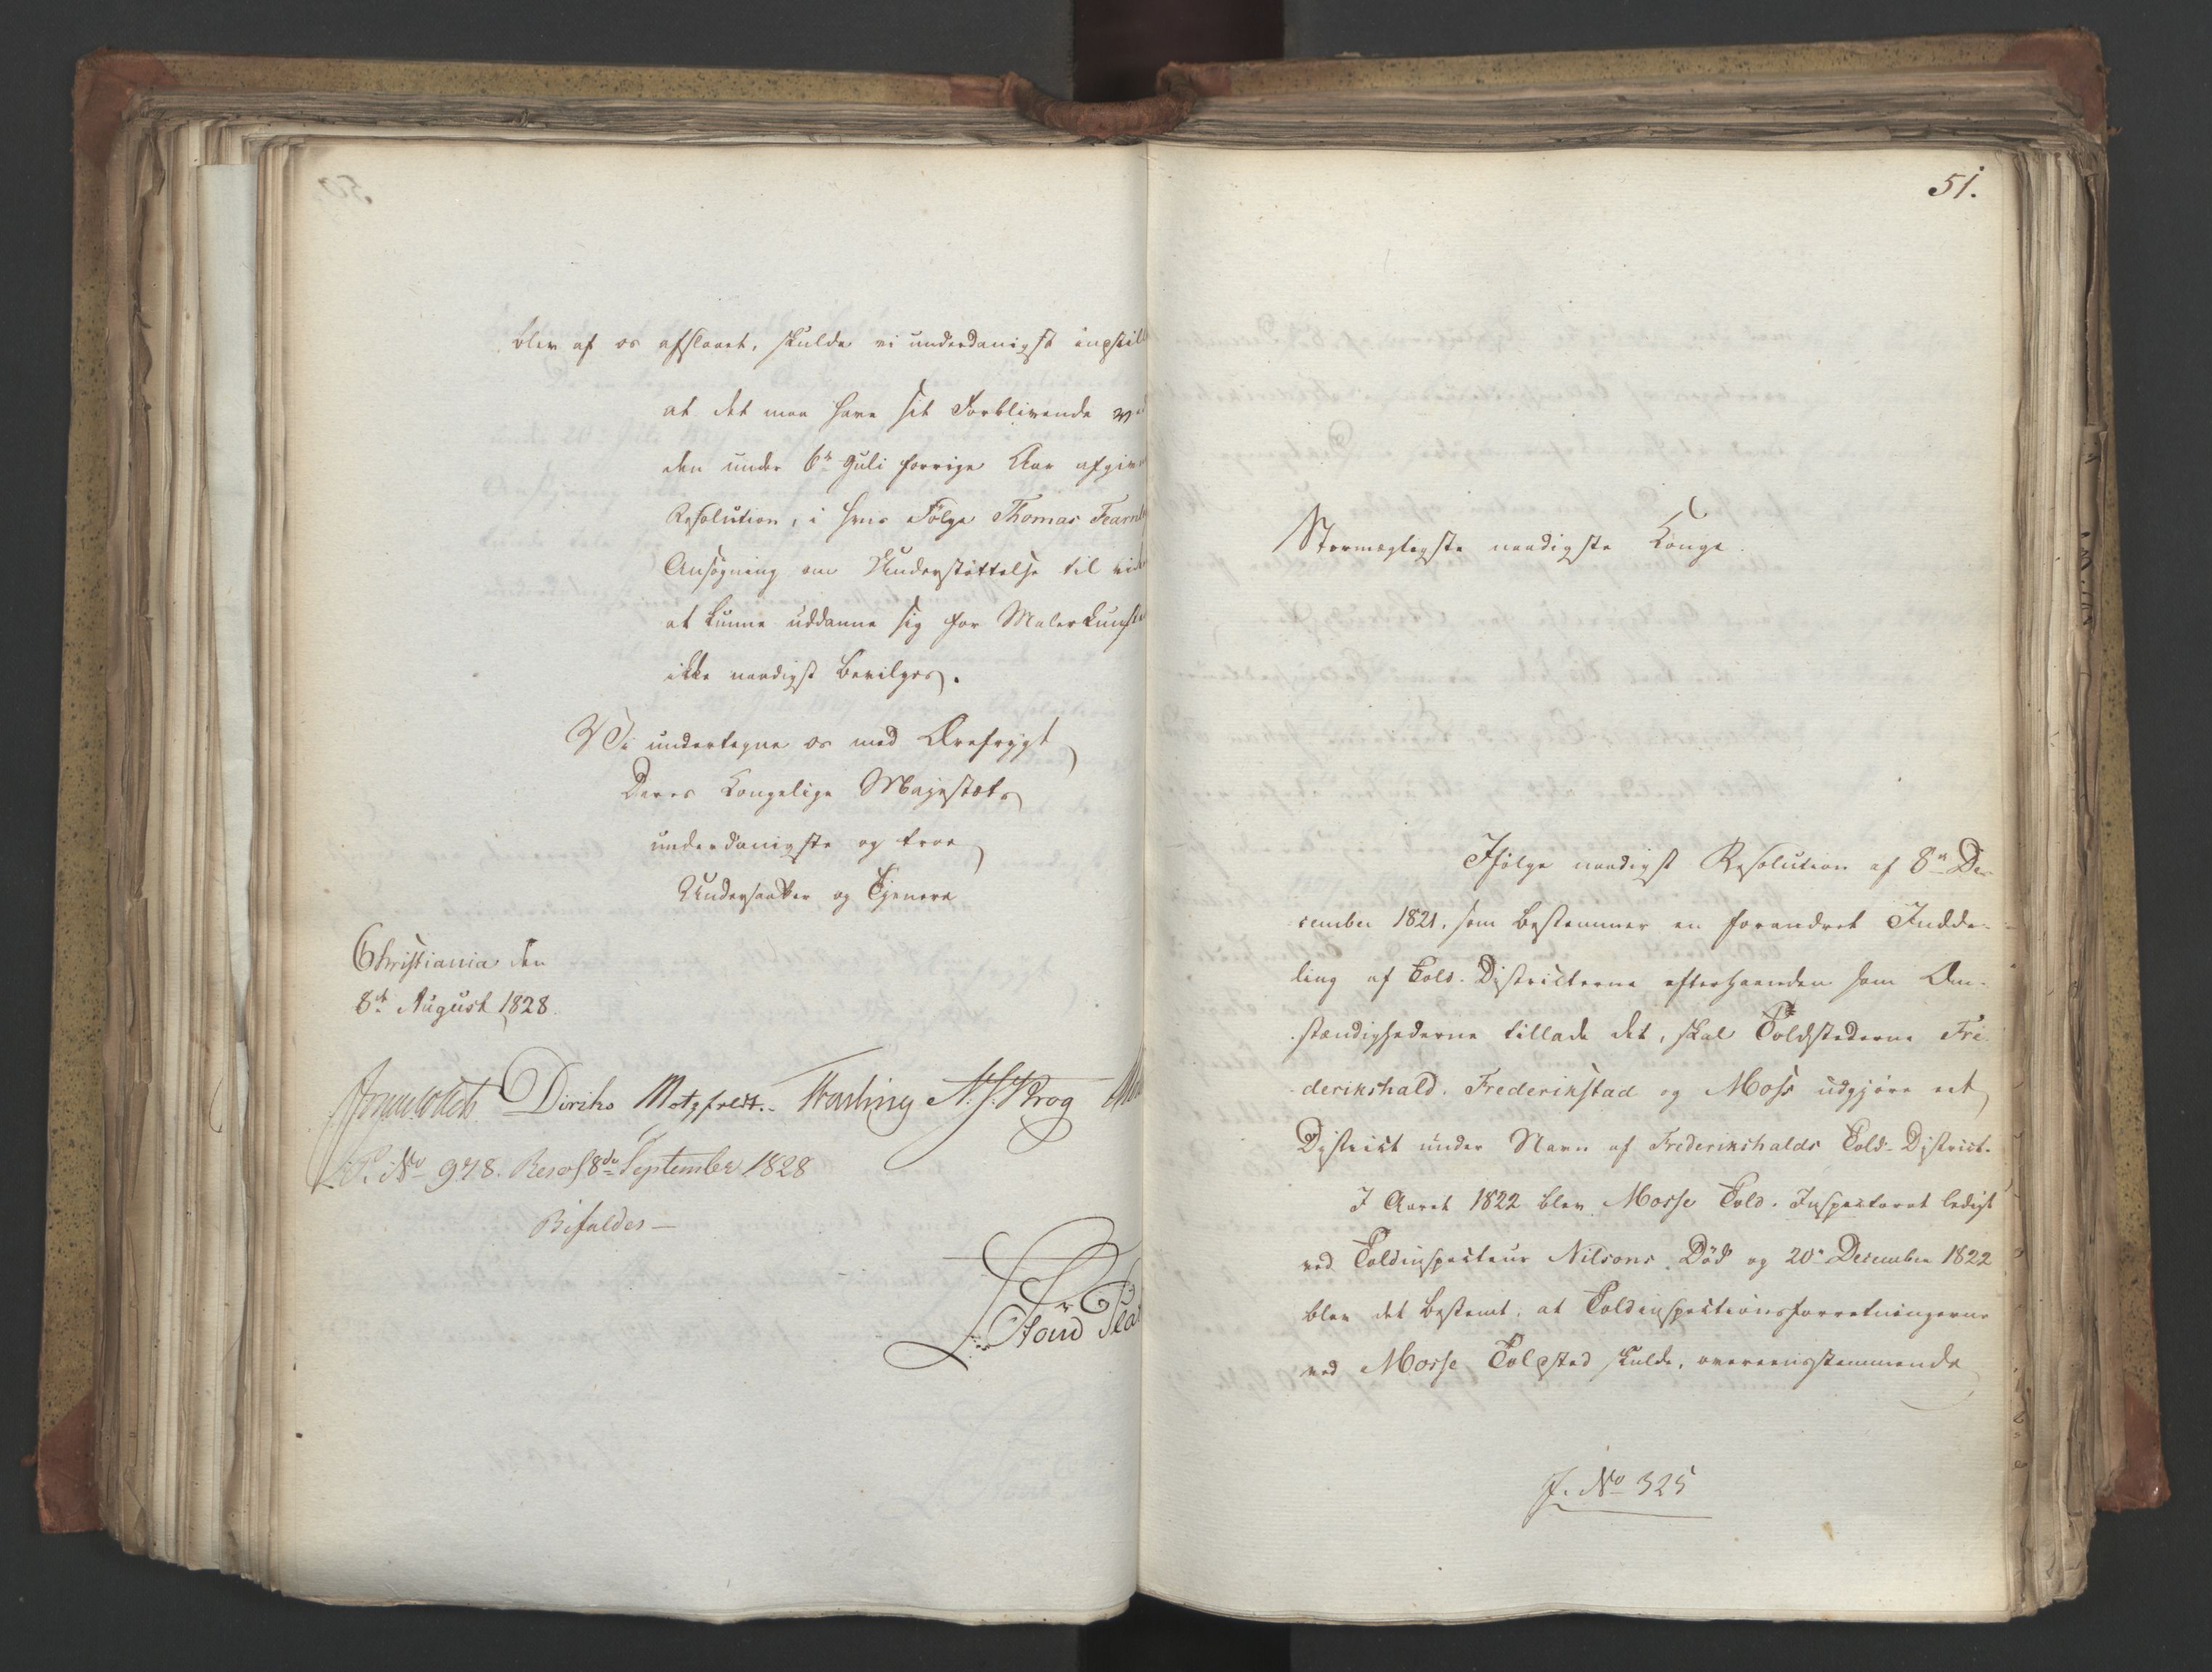 blev af os afslaaet, skulde vi underdanigst inpstil
at det maa have sit Forblivende
den under 6te Juli forrige Aar afgiv
Resolution, i hvis Følge Thomas Fearnl
Ansøgning om Understøttelse til vid
at kunne uddanne sig for Malerkunst
ikke naadigst bevilges.
Vi undertegne os med Ærefrygt
Deres Kongelige Majestæts
underdanigste og troe
Undersaatter og Tjenere
Christiania den
8de August 1828.
Diriks Motzfeldt. Krog
No 978. Resol 8de September 1828
Bifaldes—
51.
Stormægtigste naadigste Konge.
Ifølge naadigst Resolution af 8de De-
cember 1821, som bestemmer en forandret Indde-
ling af Told-Districterne efterhaanden som Om-
stændighederne tillade det, skal Toldstederne Fre-
derikshald, Frederikstad og Moss udgjøre eet
District under Navn af Frederikshalds Told-District.
I Aaret 1822 blev Mosse Told-Inspectorat ledigt
ved Toldinspecteur Nilsons Død og 20de December 1822
blev det bestemt, at Toldinspectionsforretningerne
ved Mosse Toldsted skulde, overeensstemmende
J. No 325